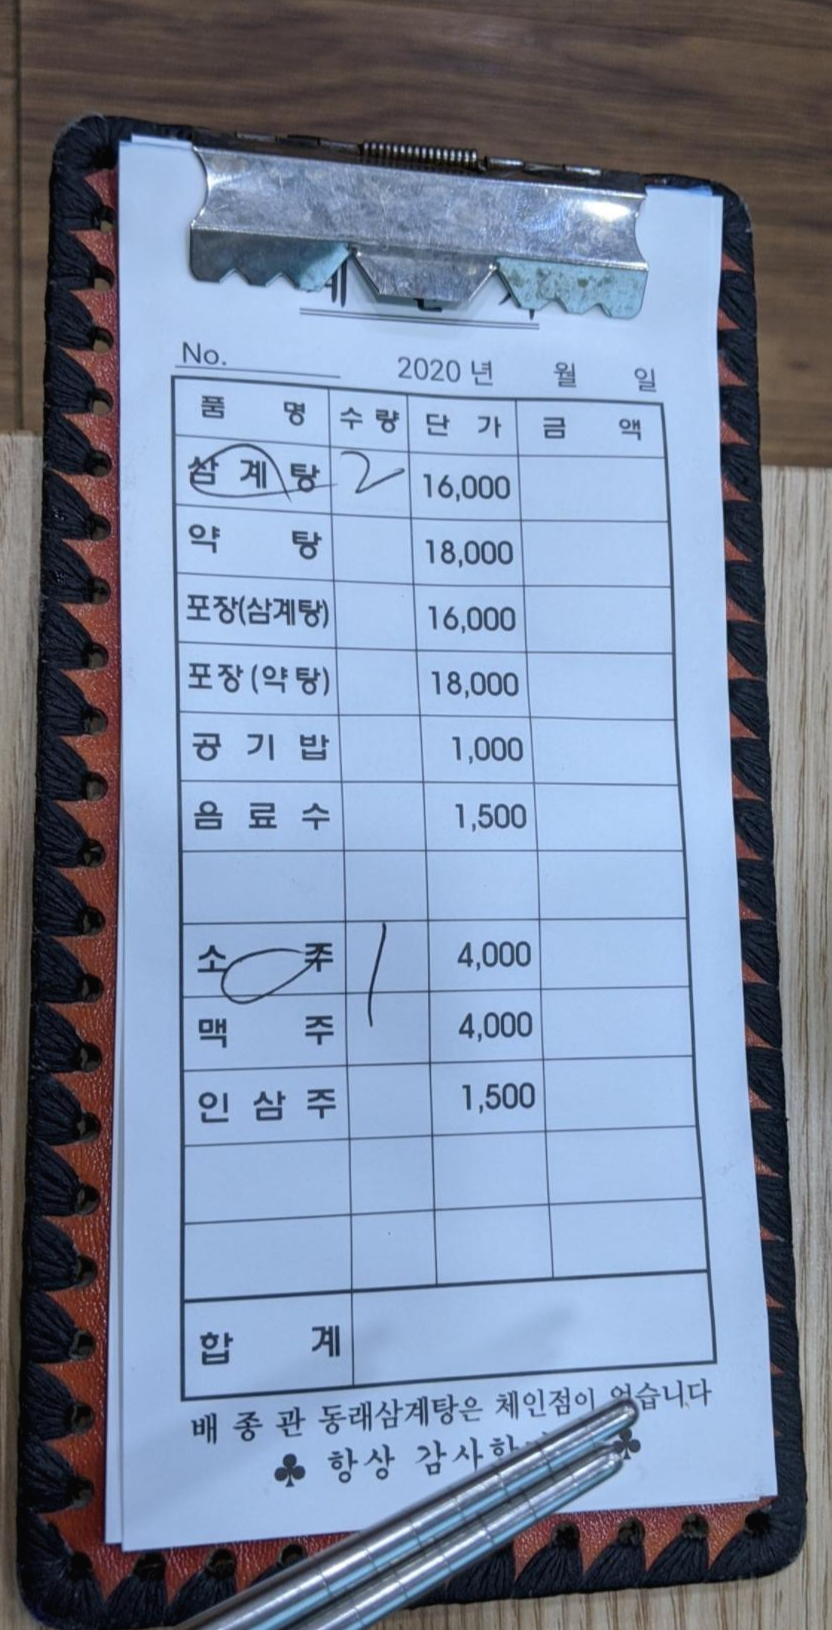 No. 2020 년 월 일
품 명 수 량 단 가 금 액
삼 계 탕 2 16,000
약 탕 18,000
포장(삼계탕) 16,000
포장(약탕) 18,000
공 기 밥 1,000
음 료 수 1,500
소 주 1 4,000
맥 주 4,000
인 삼 주 1,500
합 계
배 종 관 동래삼계탕은 체인점이 없습니다
♣ 항상 ♣